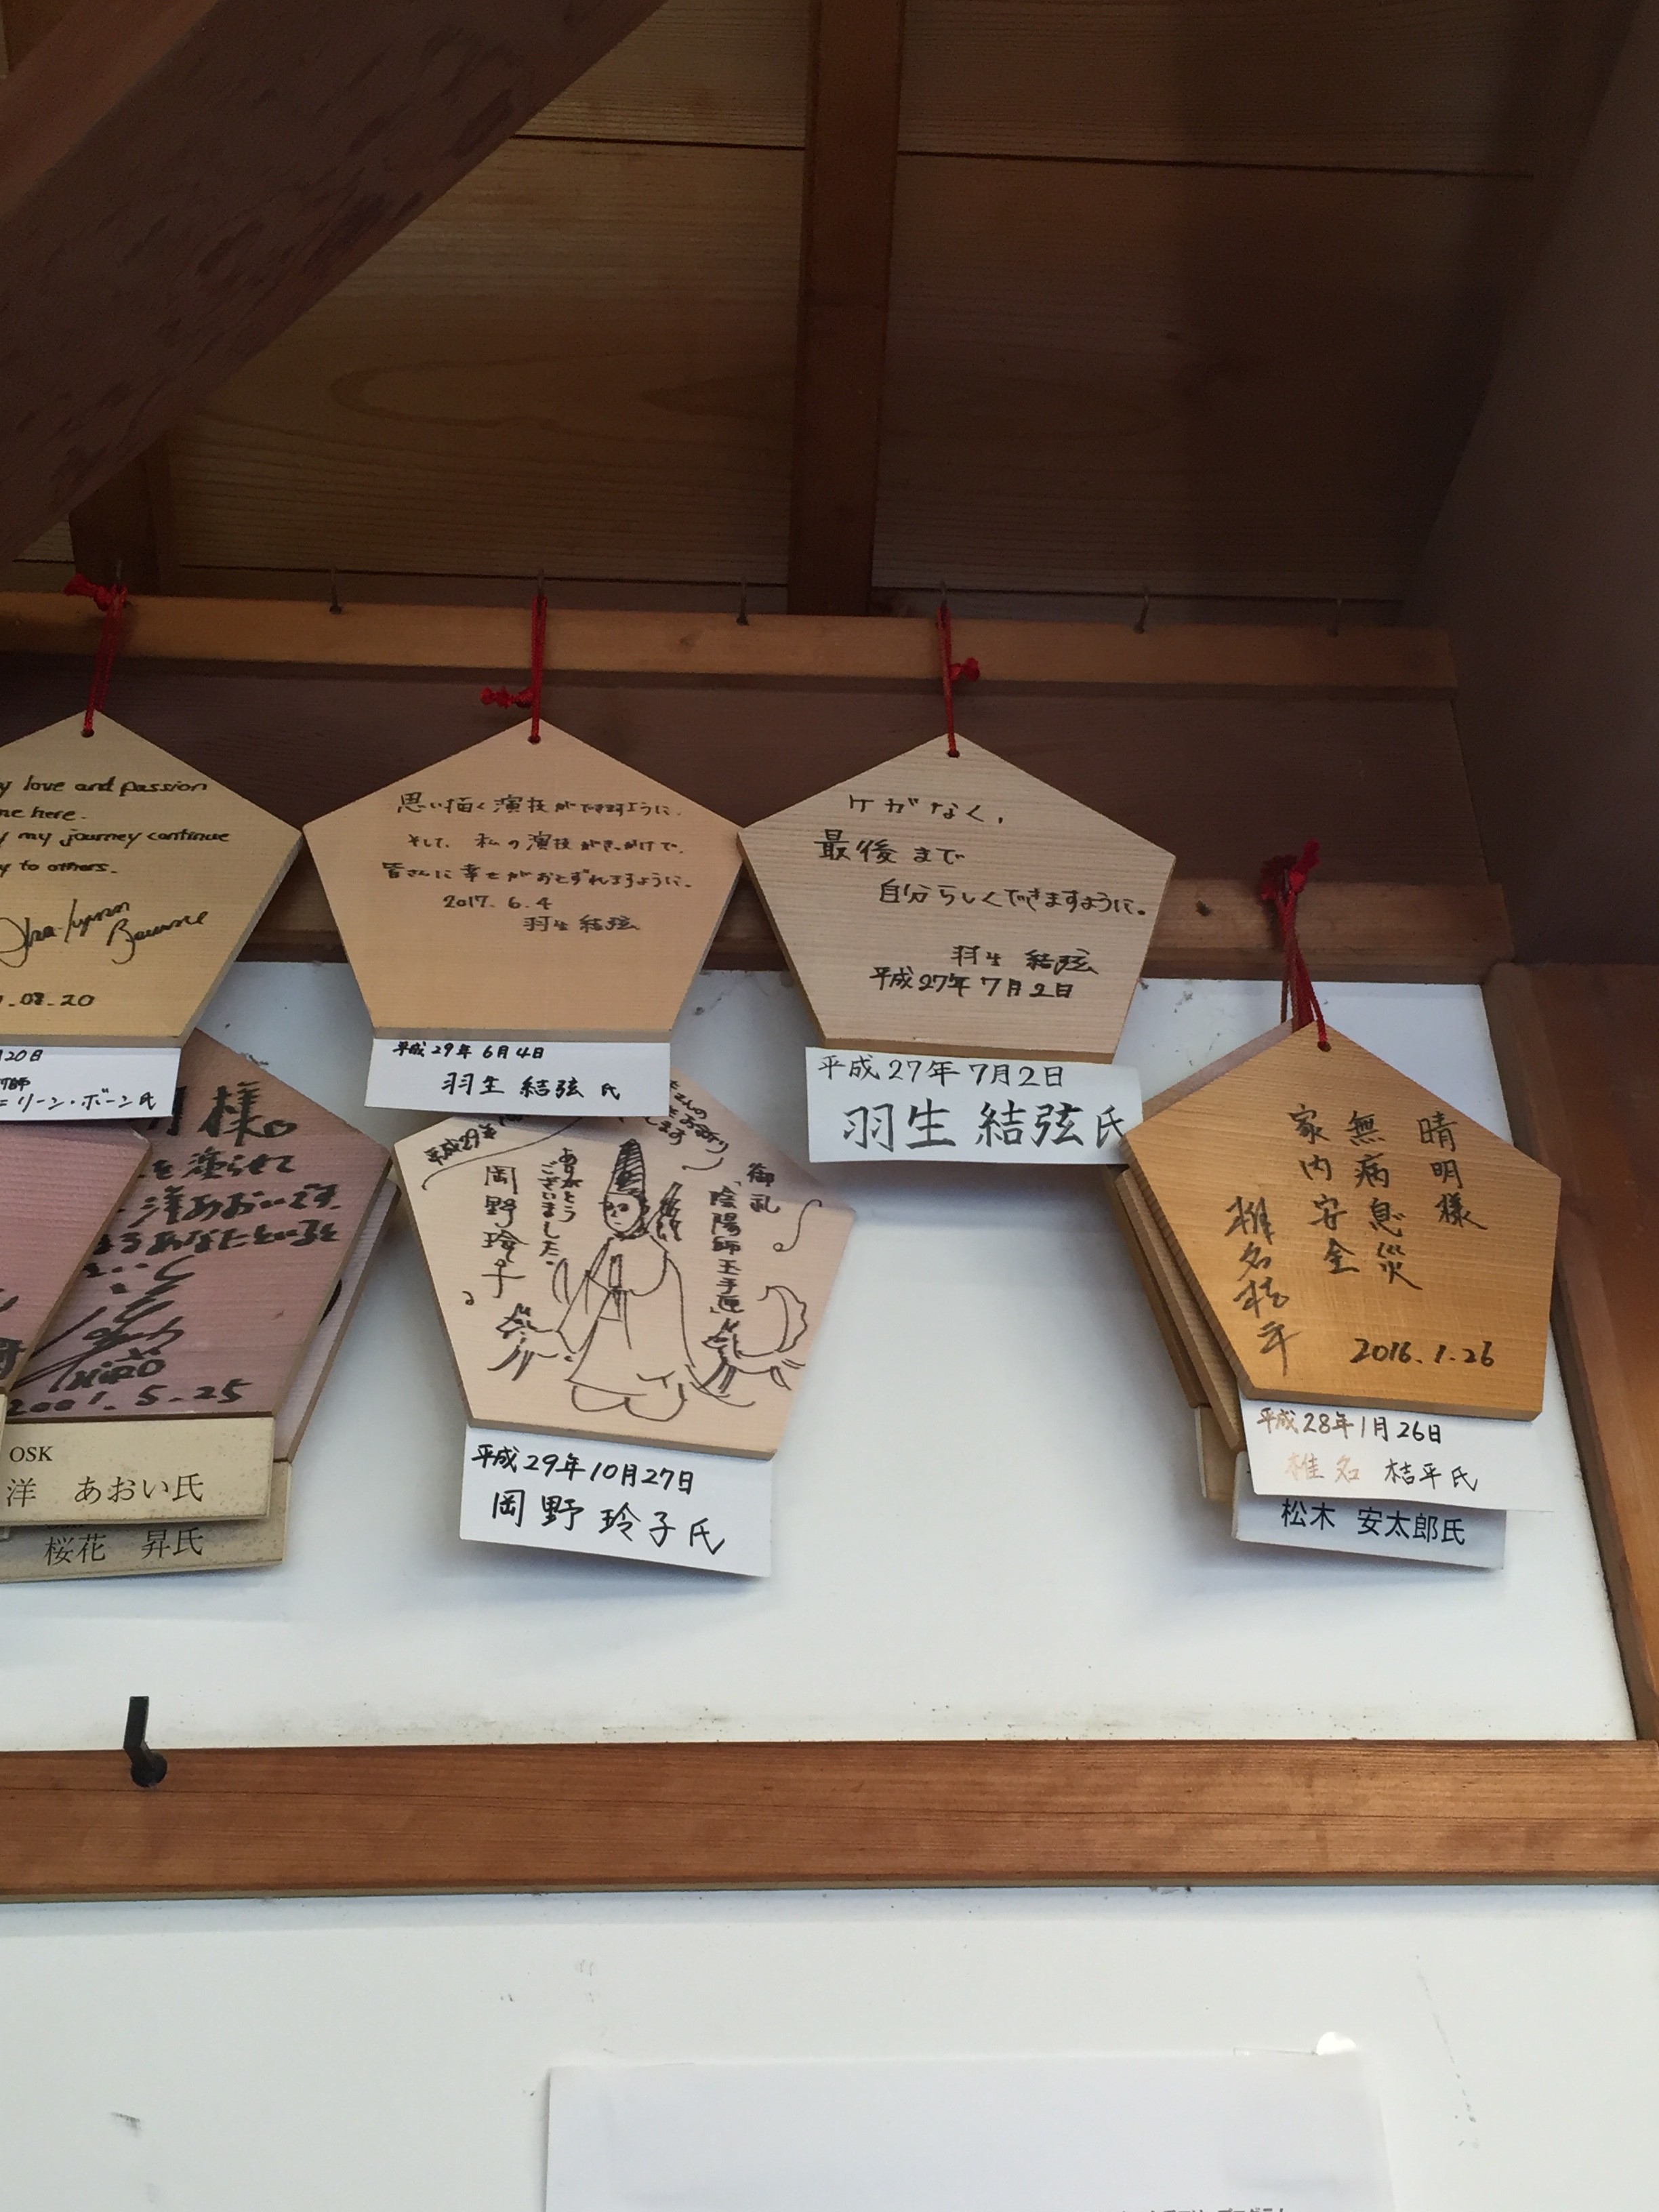 love and passion
me here.
my journey continue
to others.
.08.20
20日
リーン・ボーン氏
思い描く演技ができますように。
そして、私の演技がきっかけで、
皆さんに幸せがおとずれますように。
2017.6.4
羽生 結弦
平成29年6月4日
羽生 結弦 氏
ケガなく、
最後まで
自分らしくできますように。
羽生 結弦
平成27年7月2日
平成27年7月2日
羽生 結弦氏
晴明様
無病息災
家内安全
椎名桔平
2016.1.26
平成28年1月26日
椎名 桔平氏
松木 安太郎氏
様。
を塗らせて
洋あおいです。
あなたといると
2001.5.25
OSK
洋 あおい氏
桜花 昇氏
御礼
「陰陽師玉手匣」
ありがとう
ございました。
岡野玲子
平成29年
平成29年10月27日
岡野 玲子氏